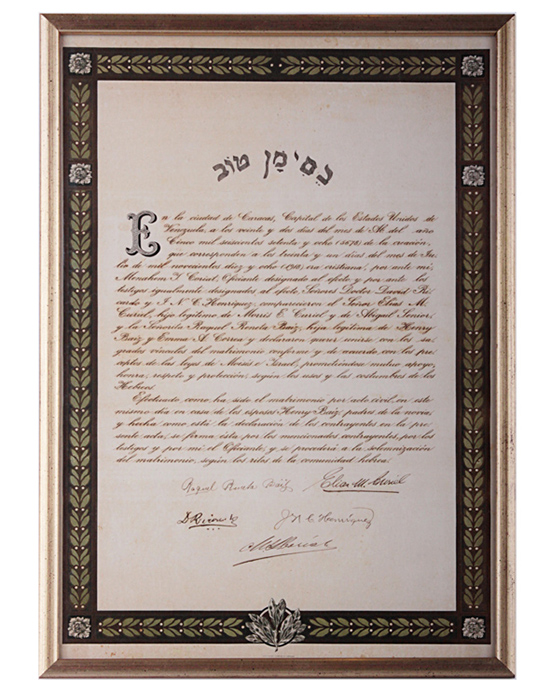 בסימן טוב
En la ciudad de Caracas, Capital de los Estados Unidos de
Venezuela, a los veinte y dos días del mes de Ab del año
Cinco mil seiscientos setenta y ocho (5678) de la creación,
que corresponden a los treinta y un días del mes de Ju-
lio de mil novecientos diez y ocho (1918) era cristiana; por ante mi,
Menahem I. Curiel, Oficiante designado al efecto y por ante los
testigos igualmente designados al efecto, Señores Doctor David Ri-
cardo y J. N. C. Henriquez, comparecieron el Señor Elías M.
Curiel, hijo legítimo de Morris E. Curiel y de Abigail Senior,
y la Señorita Raquel Renata Baiz, hija legítima de Henrry
Baiz y Emma A. Correa y declararon querer unirse con los sa-
grados vínculos del matrimonio conforme y de acuerdo con los pre-
ceptos de las leyes de Moisés e Israel, prometiéndose mutuo apoyo,
honra, respeto y protección, según los usos y las costumbres de los
Hebreos.
Efectuado como ha sido el matrimonio por acto civil, en este
mismo día en casa de los esposos Henrry Baiz, padres de la novia,
y hecha como está la declaración de los contrayentes en la pre-
sente acta, se firma ésta por los mencionados contrayentes, por los
testigos y por mí el Oficiante, y se procederá a la solemnización
del matrimonio, según los ritos de la comunidad hebrea.
Raquel Renata Baiz Elías M. Curiel
D. Ricardo J. N. C. Henriquez